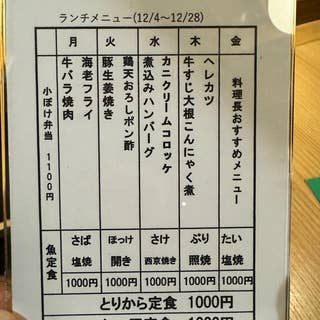 ランチメニュー(12/4〜12/28)
月 火 水 木 金
小ぼけ弁当 1100円
海老フライ
牛バラ焼肉
鶏天おろしポン酢
豚生姜焼き
カニクリームコロッケ
煮込みハンバーグ
ヘレカツ
牛すじ大根こんにゃく煮
料理長おすすめメニュー
魚定食
さば 塩焼 1000円
ほっけ 開き 1000円
さけ 西京焼き 1000円
ぶり 照焼 1000円
たい 塩焼 1000円
とりから定食 1000円